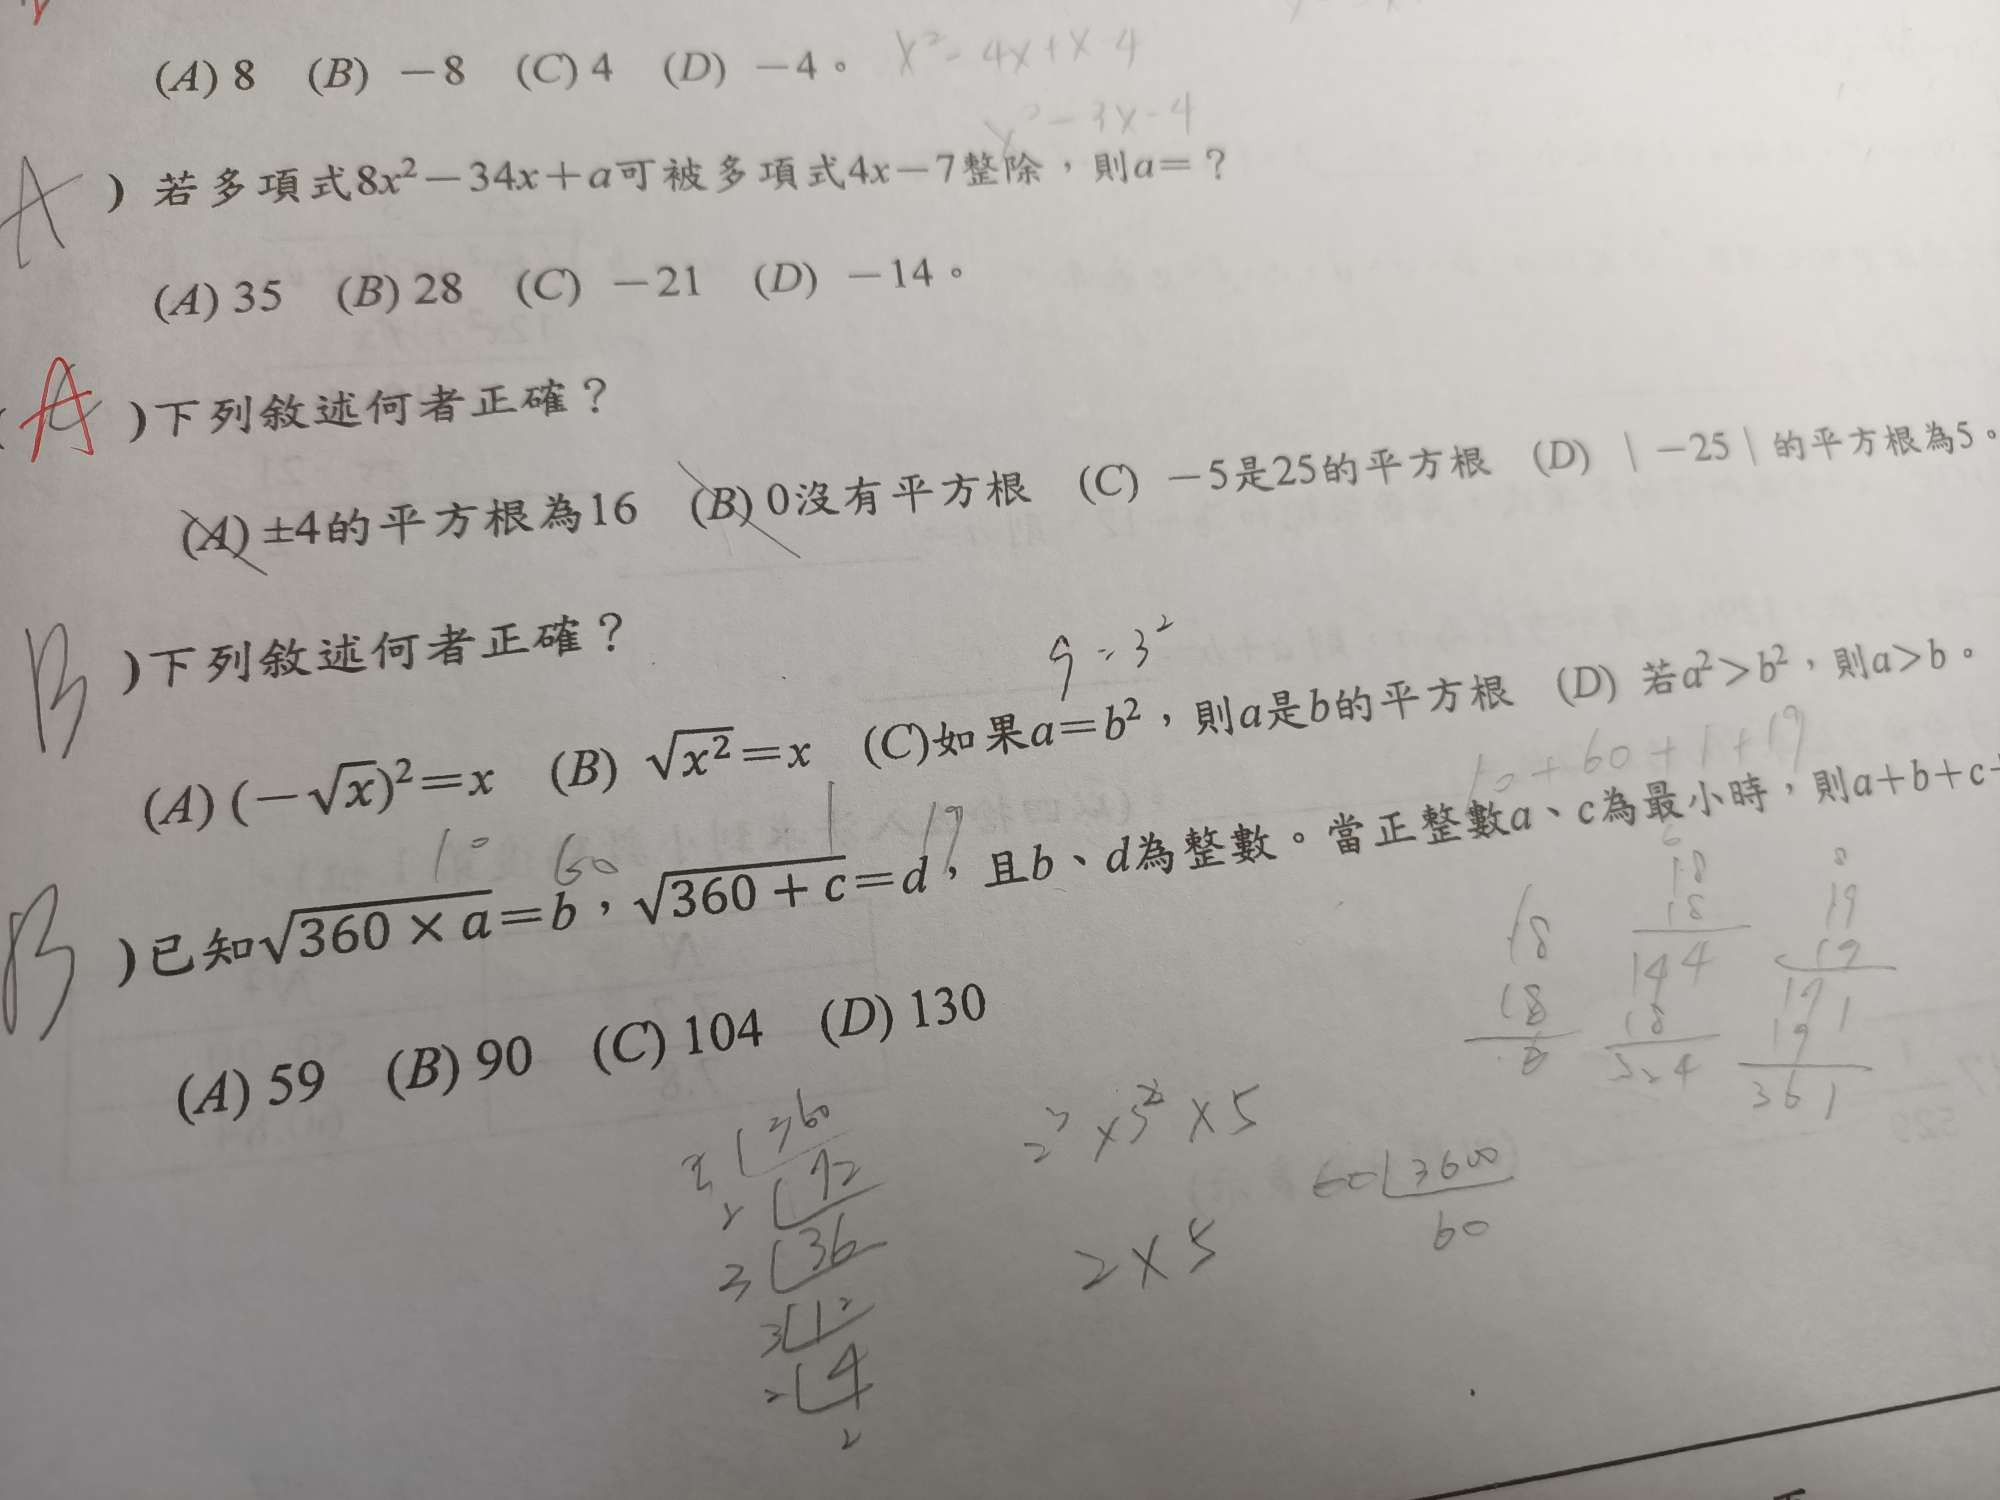 (A) 8 (B) －8 (C) 4 (D) －4。 x²-4x+x-4
x²-3x-4
A ) 若多項式8x²－34x＋a可被多項式4x－7整除，則a＝？
(A) 35 (B) 28 (C) －21 (D) －14。
A )下列敘述何者正確？
(A) ±4的平方根為16 (B) 0沒有平方根 (C) －5是25的平方根 (D) ｜－25｜的平方根為5。
B )下列敘述何者正確？
9=3²
(A) (－√x)²＝x (B) √x²＝x (C)如果a＝b²，則a是b的平方根 (D) 若a²＞b²，則a＞b。
10 60 1 19 10+60+1+19
B )已知√360 × a＝b，√360 + c＝d，且b、d為整數。當正整數a、c為最小時，則a＋b＋c＋
(A) 59 (B) 90 (C) 104 (D) 130
18 18 19
18 18 19
144 171
18 19
324 361
360 2³×3²×5
2 72 60 3600
3 36 2×5 60
3 12
2 4
2